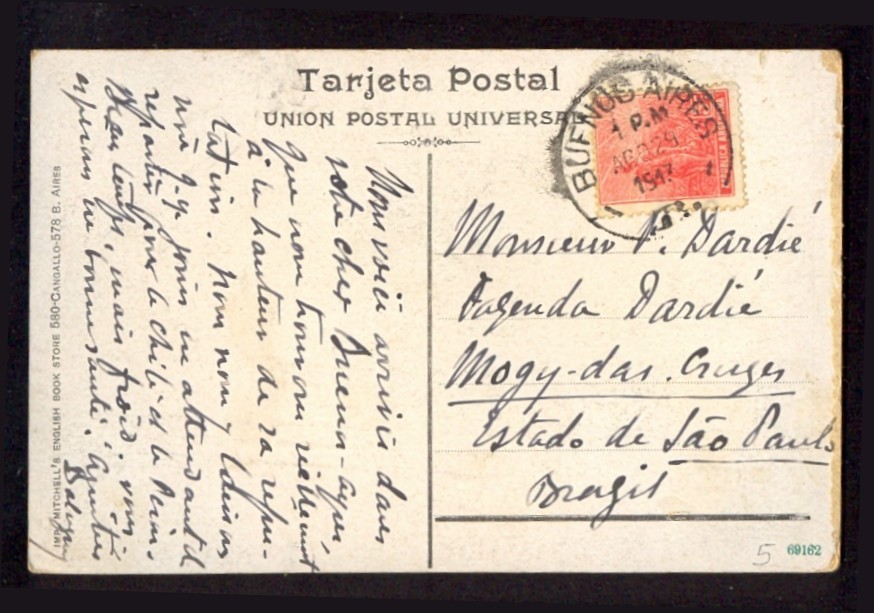 Tarjeta Postal
UNION POSTAL UNIVERSAL
BUENOS AIRES
1 P.M
AGO 29
1917
Nous voici arrivés dans
votre cher Buenos-ayres,
que nous trouvons réellement
à la hauteur de sa répu-
tation. Nous nous y
une q.q. jours en attendant de
repartir pour le Chili et le Pérou.
Beau temps, mais froid. Vous
espérons en bonne santé.
Monsieur V. Dardié
Fazenda Dardié
Mogy-das-Cruzes
Estado de São Paulo
Brazil
MITCHELL'S ENGLISH BOOK STORE 580-CANGALLO-578 B. AIRES
5
69162